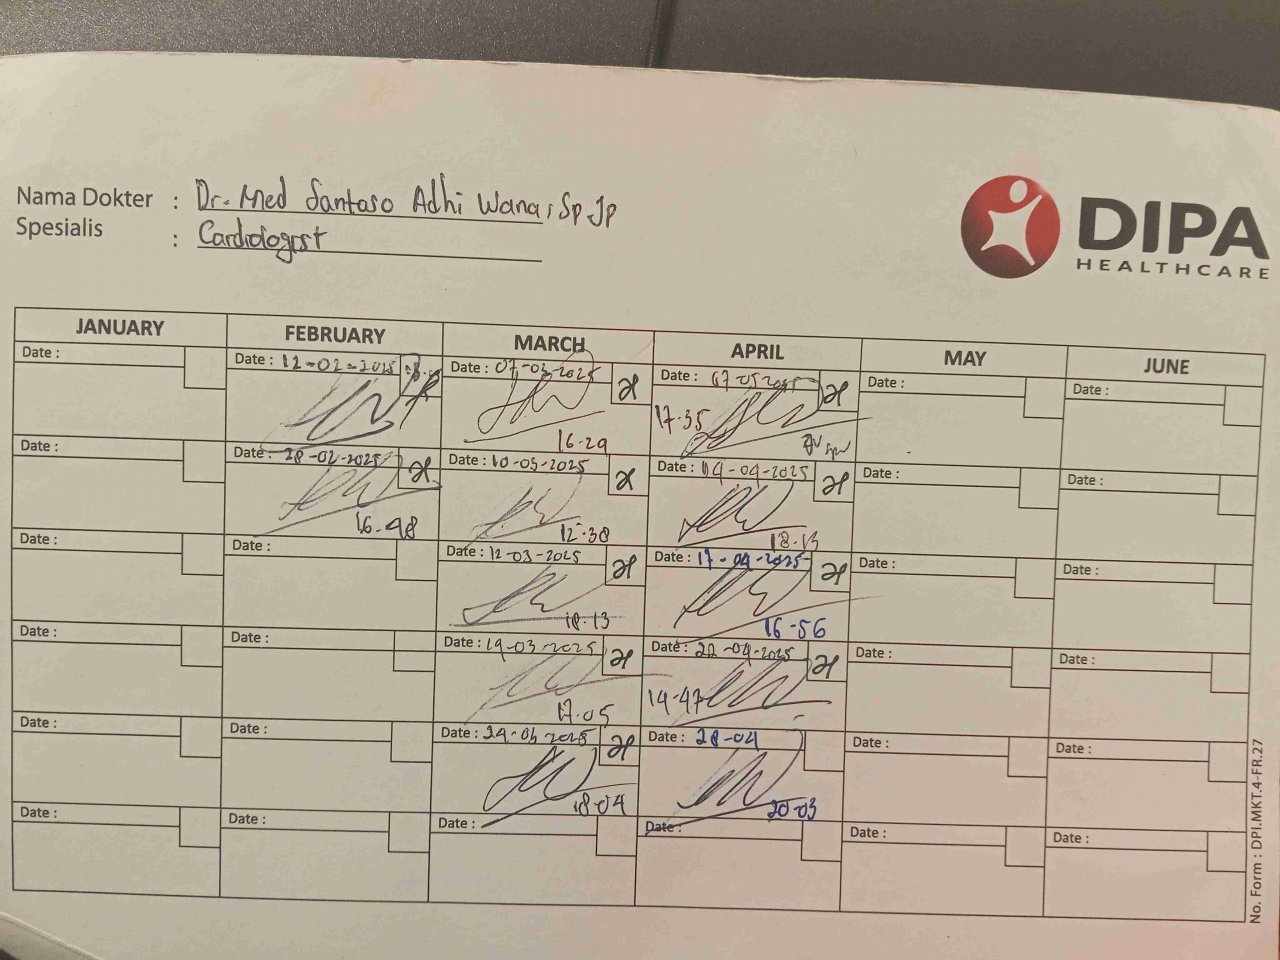 Nama Dokter : Dr. Med Santaso Adhi Wana, Sp Jp
Spesialis : Cardiologist
DIPA
HEALTHCARE
JANUARY FEBRUARY MARCH APRIL MAY JUNE
Date : Date : 12-02-2025 Date : 07-03-2025 Date : 07-05 2025 Date : Date :
16.29 17.35
Date : Date : 28-02-2025 Date : 10-03-2025 Date : 14-04-2025 Date : Date :
16.48 12.38 18.13
Date : Date : Date : 12-03-2025 Date : 17-04-2025 Date : Date :
18.13 16-56
Date : Date : Date : 19-03-2025 Date : 22-04-2025 Date : Date :
17.05 14-47
Date : Date : Date : 24-03-2025 Date : 28-04 Date : Date :
18-04 20-03
Date : Date : Date : Date : Date : Date :
No. Form : DPI.MKT.4-FR.27